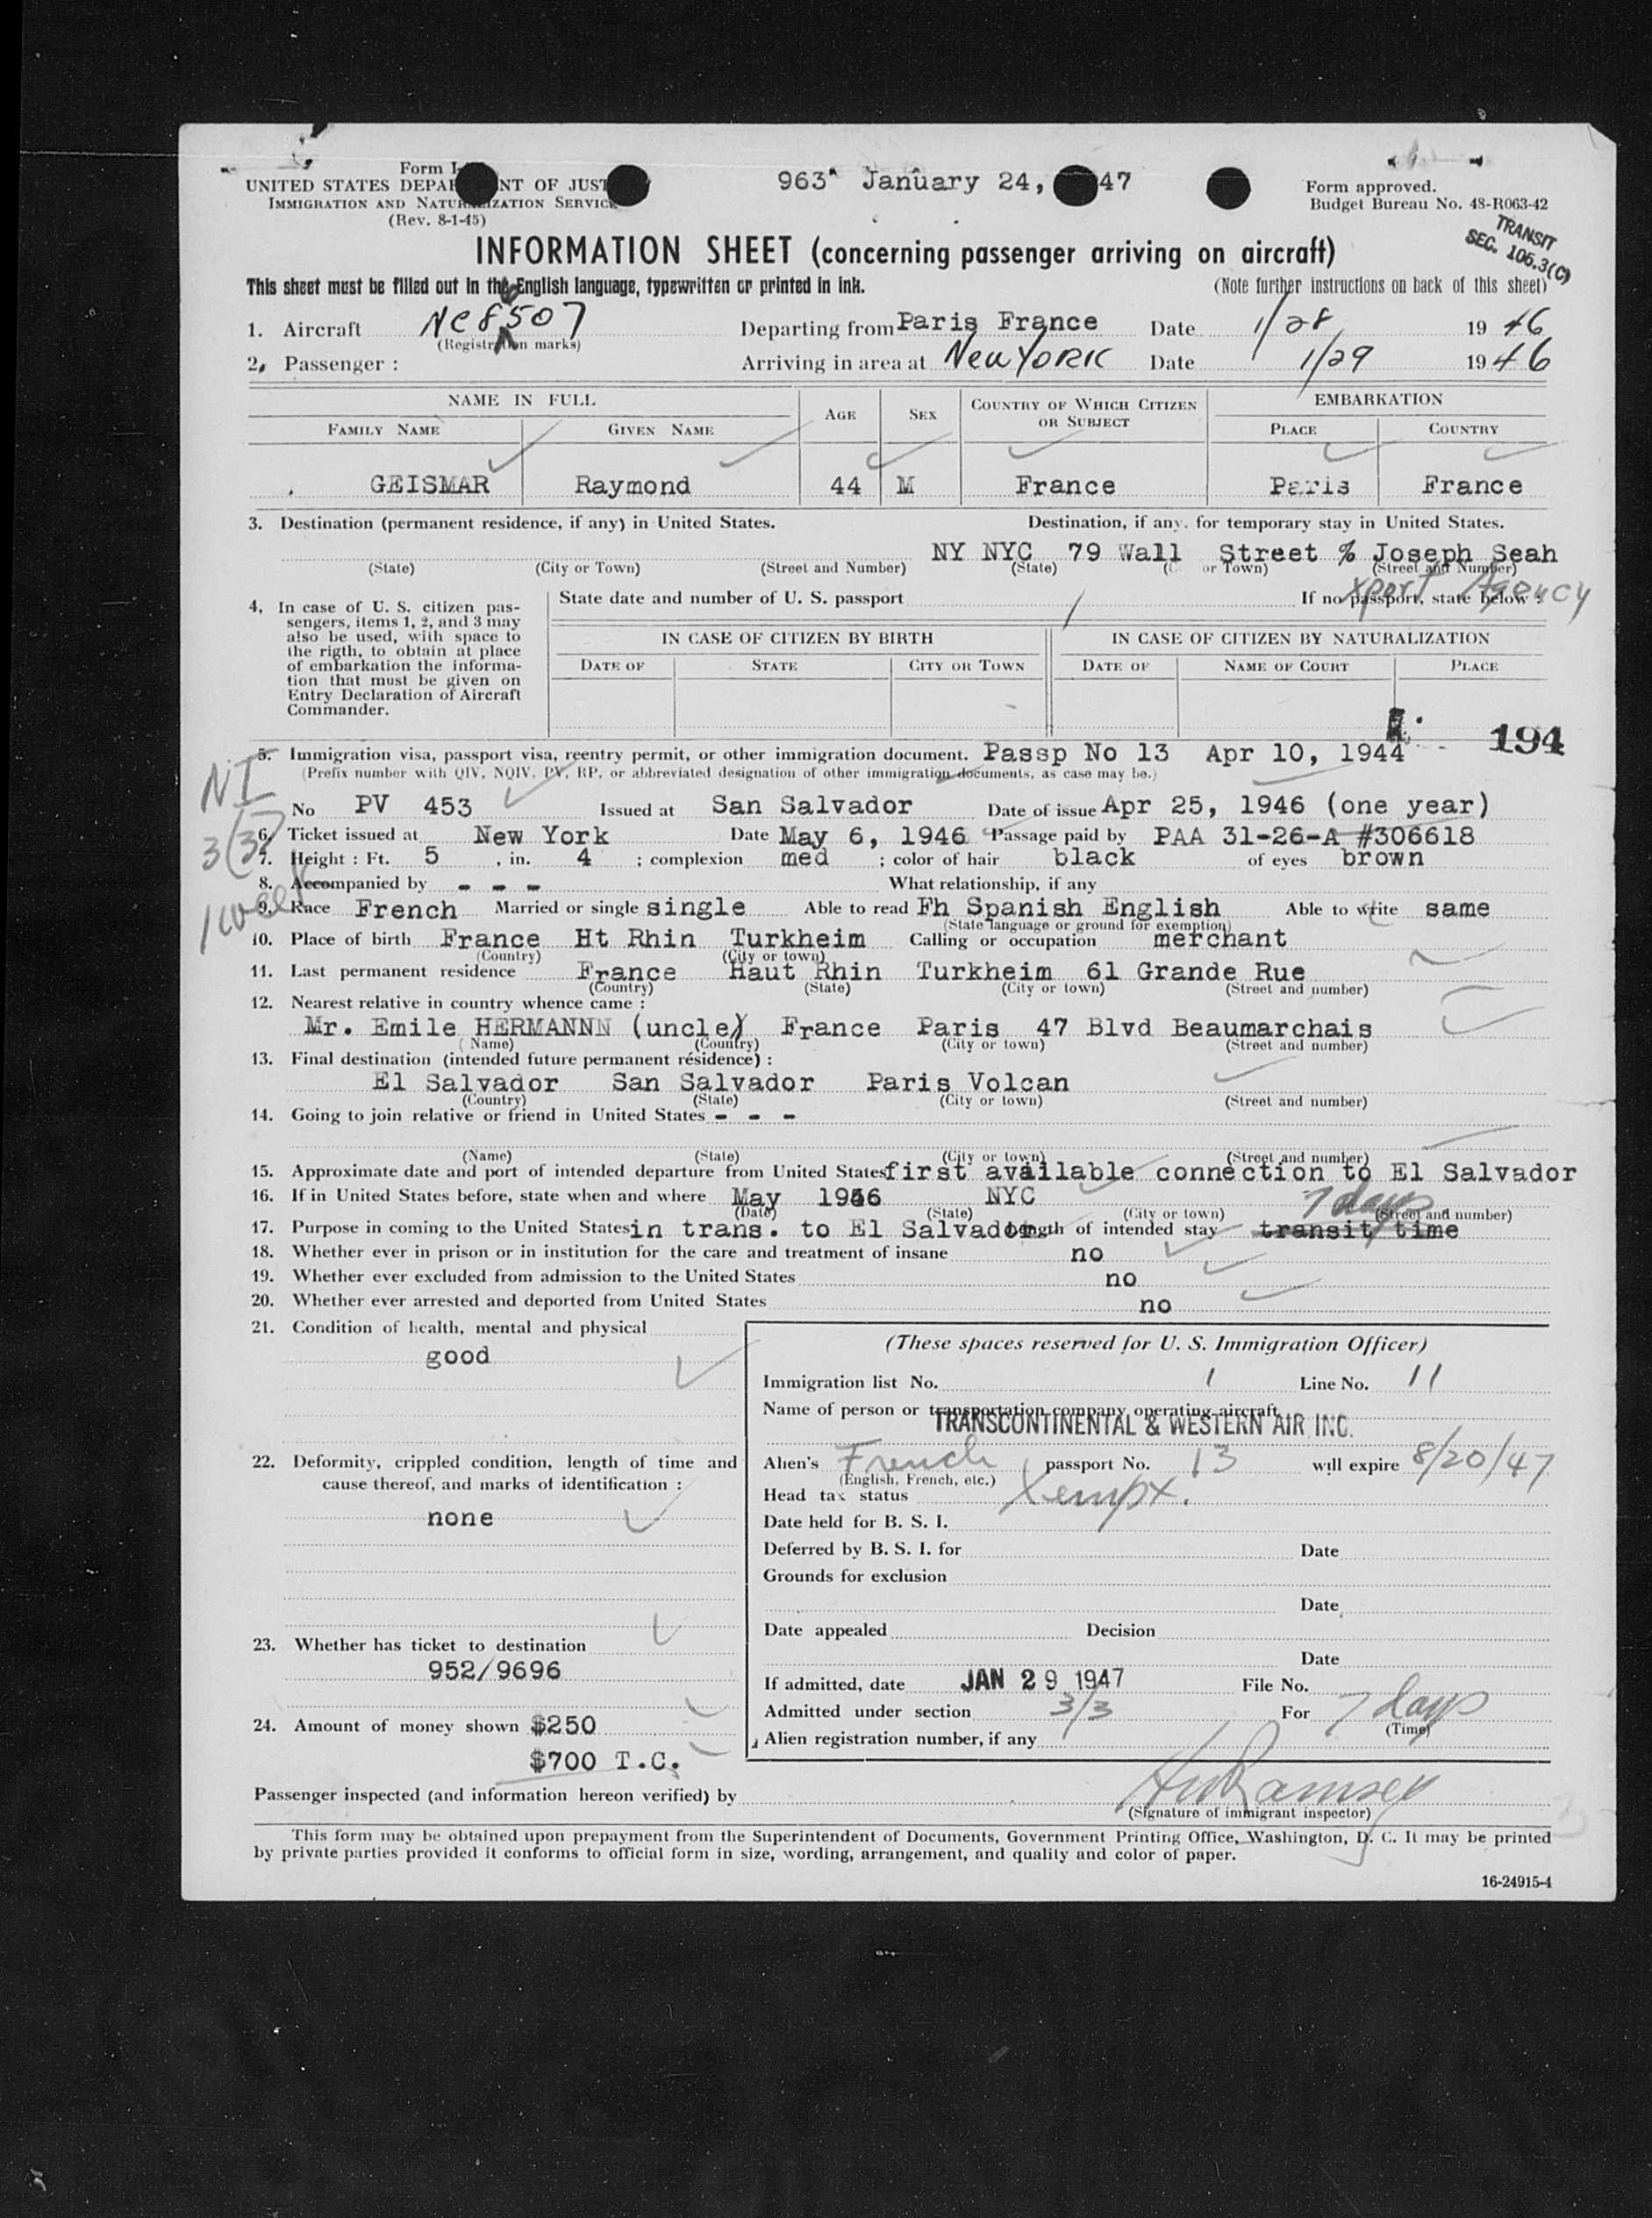 Form I-
963 January 24, 47
Form approved.
UNITED STATES DEPA NT OF JUST
Budget Bureau No. 43-R063-42
IMMIGRATION AND NATURALIZATION SERVICE
(Rev. 8-1-45)
TRANSIT
SEC. 106.3(C)
INFORMATION SHEET (concerning passenger arriving on aircraft)
This sheet must be filled out in the English language, typewritten or printed in ink.
(Note further instructions on back of this sheet)
1. Aircraft NC 8507 Departing from Paris France Date 1/28 19 46
(Registration marks)
2. Passenger : Arriving in area at New YORK Date 1/29 19 46
NAME IN FULL AGE SEX COUNTRY OF WHICH CITIZEN OR SUBJECT EMBARKATION
FAMILY NAME GIVEN NAME PLACE COUNTRY
GEISMAR Raymond 44 M France Paris France
3. Destination (permanent residence, if any) in United States. Destination, if any, for temporary stay in United States.
NY NYC 79 Wall Street % Joseph Seah
(State) (City or Town) (Street and Number) (State) (C or Town) (Street and Number)
Xport Agency
4. In case of U. S. citizen pas-
sengers, items 1, 2, and 3 may
also be used, with space to
the rigth, to obtain at place
of embarkation the informa-
tion that must be given on
Entry Declaration of Aircraft
Commander.
State date and number of U. S. passport / If no passport, state below :
IN CASE OF CITIZEN BY BIRTH IN CASE OF CITIZEN BY NATURALIZATION
DATE OF STATE CITY OR TOWN DATE OF NAME OF COURT PLACE
194
5. Immigration visa, passport visa, reentry permit, or other immigration document. Passp No 13 Apr 10, 1944
(Prefix number with QIV, NQIV, PV, RP, or abbreviated designation of other immigration documents, as case may be.)
NI
3(3)
1 week
No PV 453 Issued at San Salvador Date of issue Apr 25, 1946 (one year)
6. Ticket issued at New York Date May 6, 1946 Passage paid by PAA 31-26-A #306618
7. Height : Ft. 5 , in. 4 ; complexion med ; color of hair black of eyes brown
8. Accompanied by - - - What relationship, if any
9. Race French Married or single single Able to read Fh Spanish English Able to write same
(State language or ground for exemption)
10. Place of birth France Ht Rhin Turkheim Calling or occupation merchant
(Country) (City or town)
11. Last permanent residence France Haut Rhin Turkheim 61 Grande Rue
(Country) (State) (City or town) (Street and number)
12. Nearest relative in country whence came :
Mr. Emile HERMANNN (uncle) France Paris 47 Blvd Beaumarchais
(Name) (Country) (City or town) (Street and number)
13. Final destination (intended future permanent résidence) :
El Salvador San Salvador Paris Volcan
(Country) (State) (City or town) (Street and number)
14. Going to join relative or friend in United States - - -
(Name) (State) (City or town) (Street and number)
15. Approximate date and port of intended departure from United States first available connection to El Salvador
16. If in United States before, state when and where May 1946 NYC
(Date) (State) (City or town) (Street and number)
7 days
17. Purpose in coming to the United States in trans. to El Salvador Length of intended stay transit time
18. Whether ever in prison or in institution for the care and treatment of insane no
19. Whether ever excluded from admission to the United States no
20. Whether ever arrested and deported from United States no
21. Condition of health, mental and physical
good
22. Deformity, crippled condition, length of time and
cause thereof, and marks of identification :
none
23. Whether has ticket to destination
952/9696
24. Amount of money shown $250
$700 T.C.
(These spaces reserved for U. S. Immigration Officer)
Immigration list No. 1 Line No. 11
Name of person or transportation company operating aircraft
TRANSCONTINENTAL & WESTERN AIR INC.
Alien's French passport No. 13 will expire 8/20/47
(English, French, etc.)
Head tax status Xempx.
Date held for B. S. I.
Deferred by B. S. I. for Date
Grounds for exclusion
Date
Date appealed Decision
Date
If admitted, date JAN 29 1947 File No.
Admitted under section 3/3 For 7 days
(Time)
Alien registration number, if any
Passenger inspected (and information hereon verified) by Ramsey
(Signature of immigrant inspector)
This form may be obtained upon prepayment from the Superintendent of Documents, Government Printing Office, Washington, D. C. It may be printed
by private parties provided it conforms to official form in size, wording, arrangement, and quality and color of paper.
16-24915-4